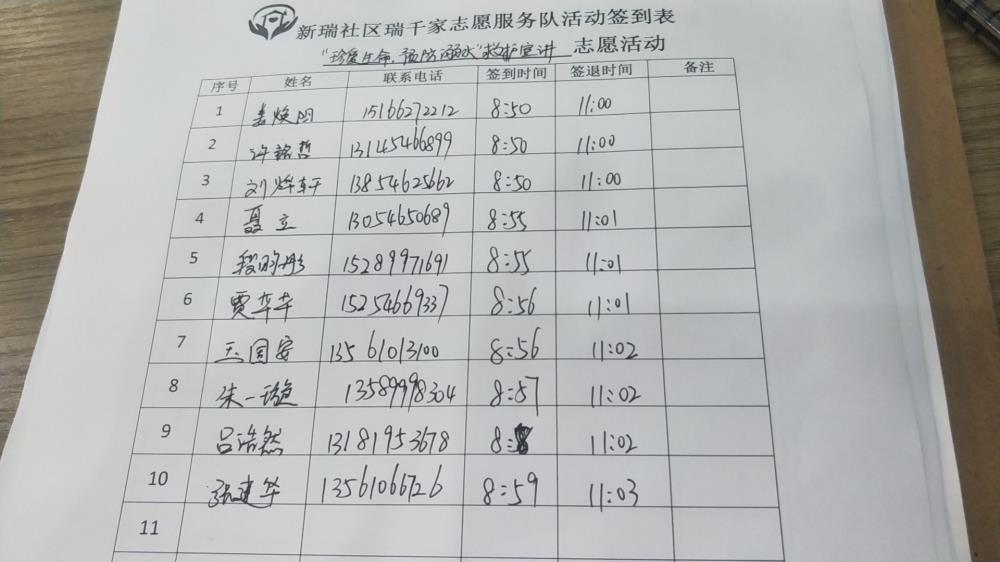 新瑞社区瑞千家志愿服务队活动签到表
"珍爱生命,预防溺水"救护宣讲 志愿活动
序号 姓名 联系电话 签到时间 签退时间 备注
1 15166272212 8:50 11:00
2 许铭哲 13145466899 8:50 11:00
3 刘烨轩 13854625662 8:50 11:00
4 聂立 13054650689 8:55 11:01
5 15289971691 8:55 11:01
6 贾苹苹 15254669337 8:56 11:01
7 王国安 13561013100 8:56 11:02
8 朱一璇 13589998304 8:57 11:02
9 吕浩然 13181953678 8:58 11:02
10 张建华 13561066726 8:59 11:03
11